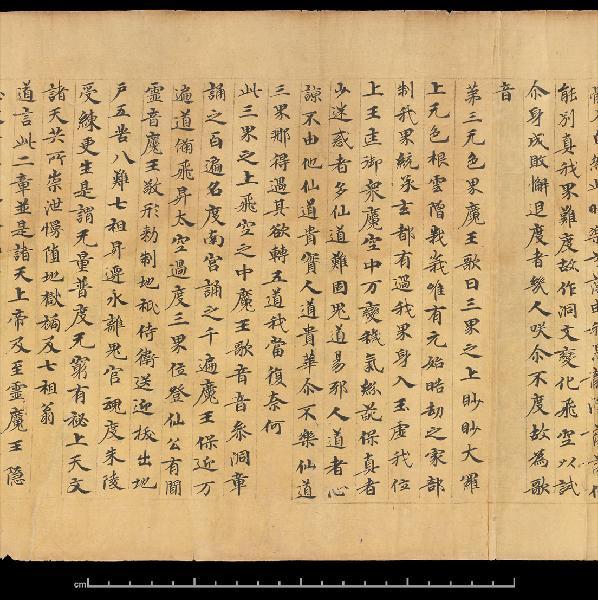 能別真我界難度故作洞文變化飛空以試
尒身成敗懈退度者幾人咲尒不度故為歌
音
第三无色界魔王歌曰三界之上眇眇大羅
上无色根雲層峩峩唯有元始晧劫之家部
制我界統承玄都有過我界身入玉虛我位
上王匡御眾魔空中万變穢氣紛葩保真者
少迷惑者多仙道難固鬼道易邪人道者心
諒不由他仙道貴實人道貴華尒不樂仙道
三界那得過其欲轉五道我當復奈何
此三界之上飛空之中魔王歌音音參洞章
誦之百遍名度南宮誦之千遍魔王保迎万
遍道備飛昇太空過度三界位登仙公有聞
靈音魔王敬形勑制地祇侍衛送迎拔出地
戶五苦八難七祖昇遷永離鬼官魂度朱陵
受練更生是謂无量普度无窮有祕上天文
諸天共所崇泄慢墮地獄禍及七祖翁
道言此二章並是諸天上帝及至靈魔王隱
cm